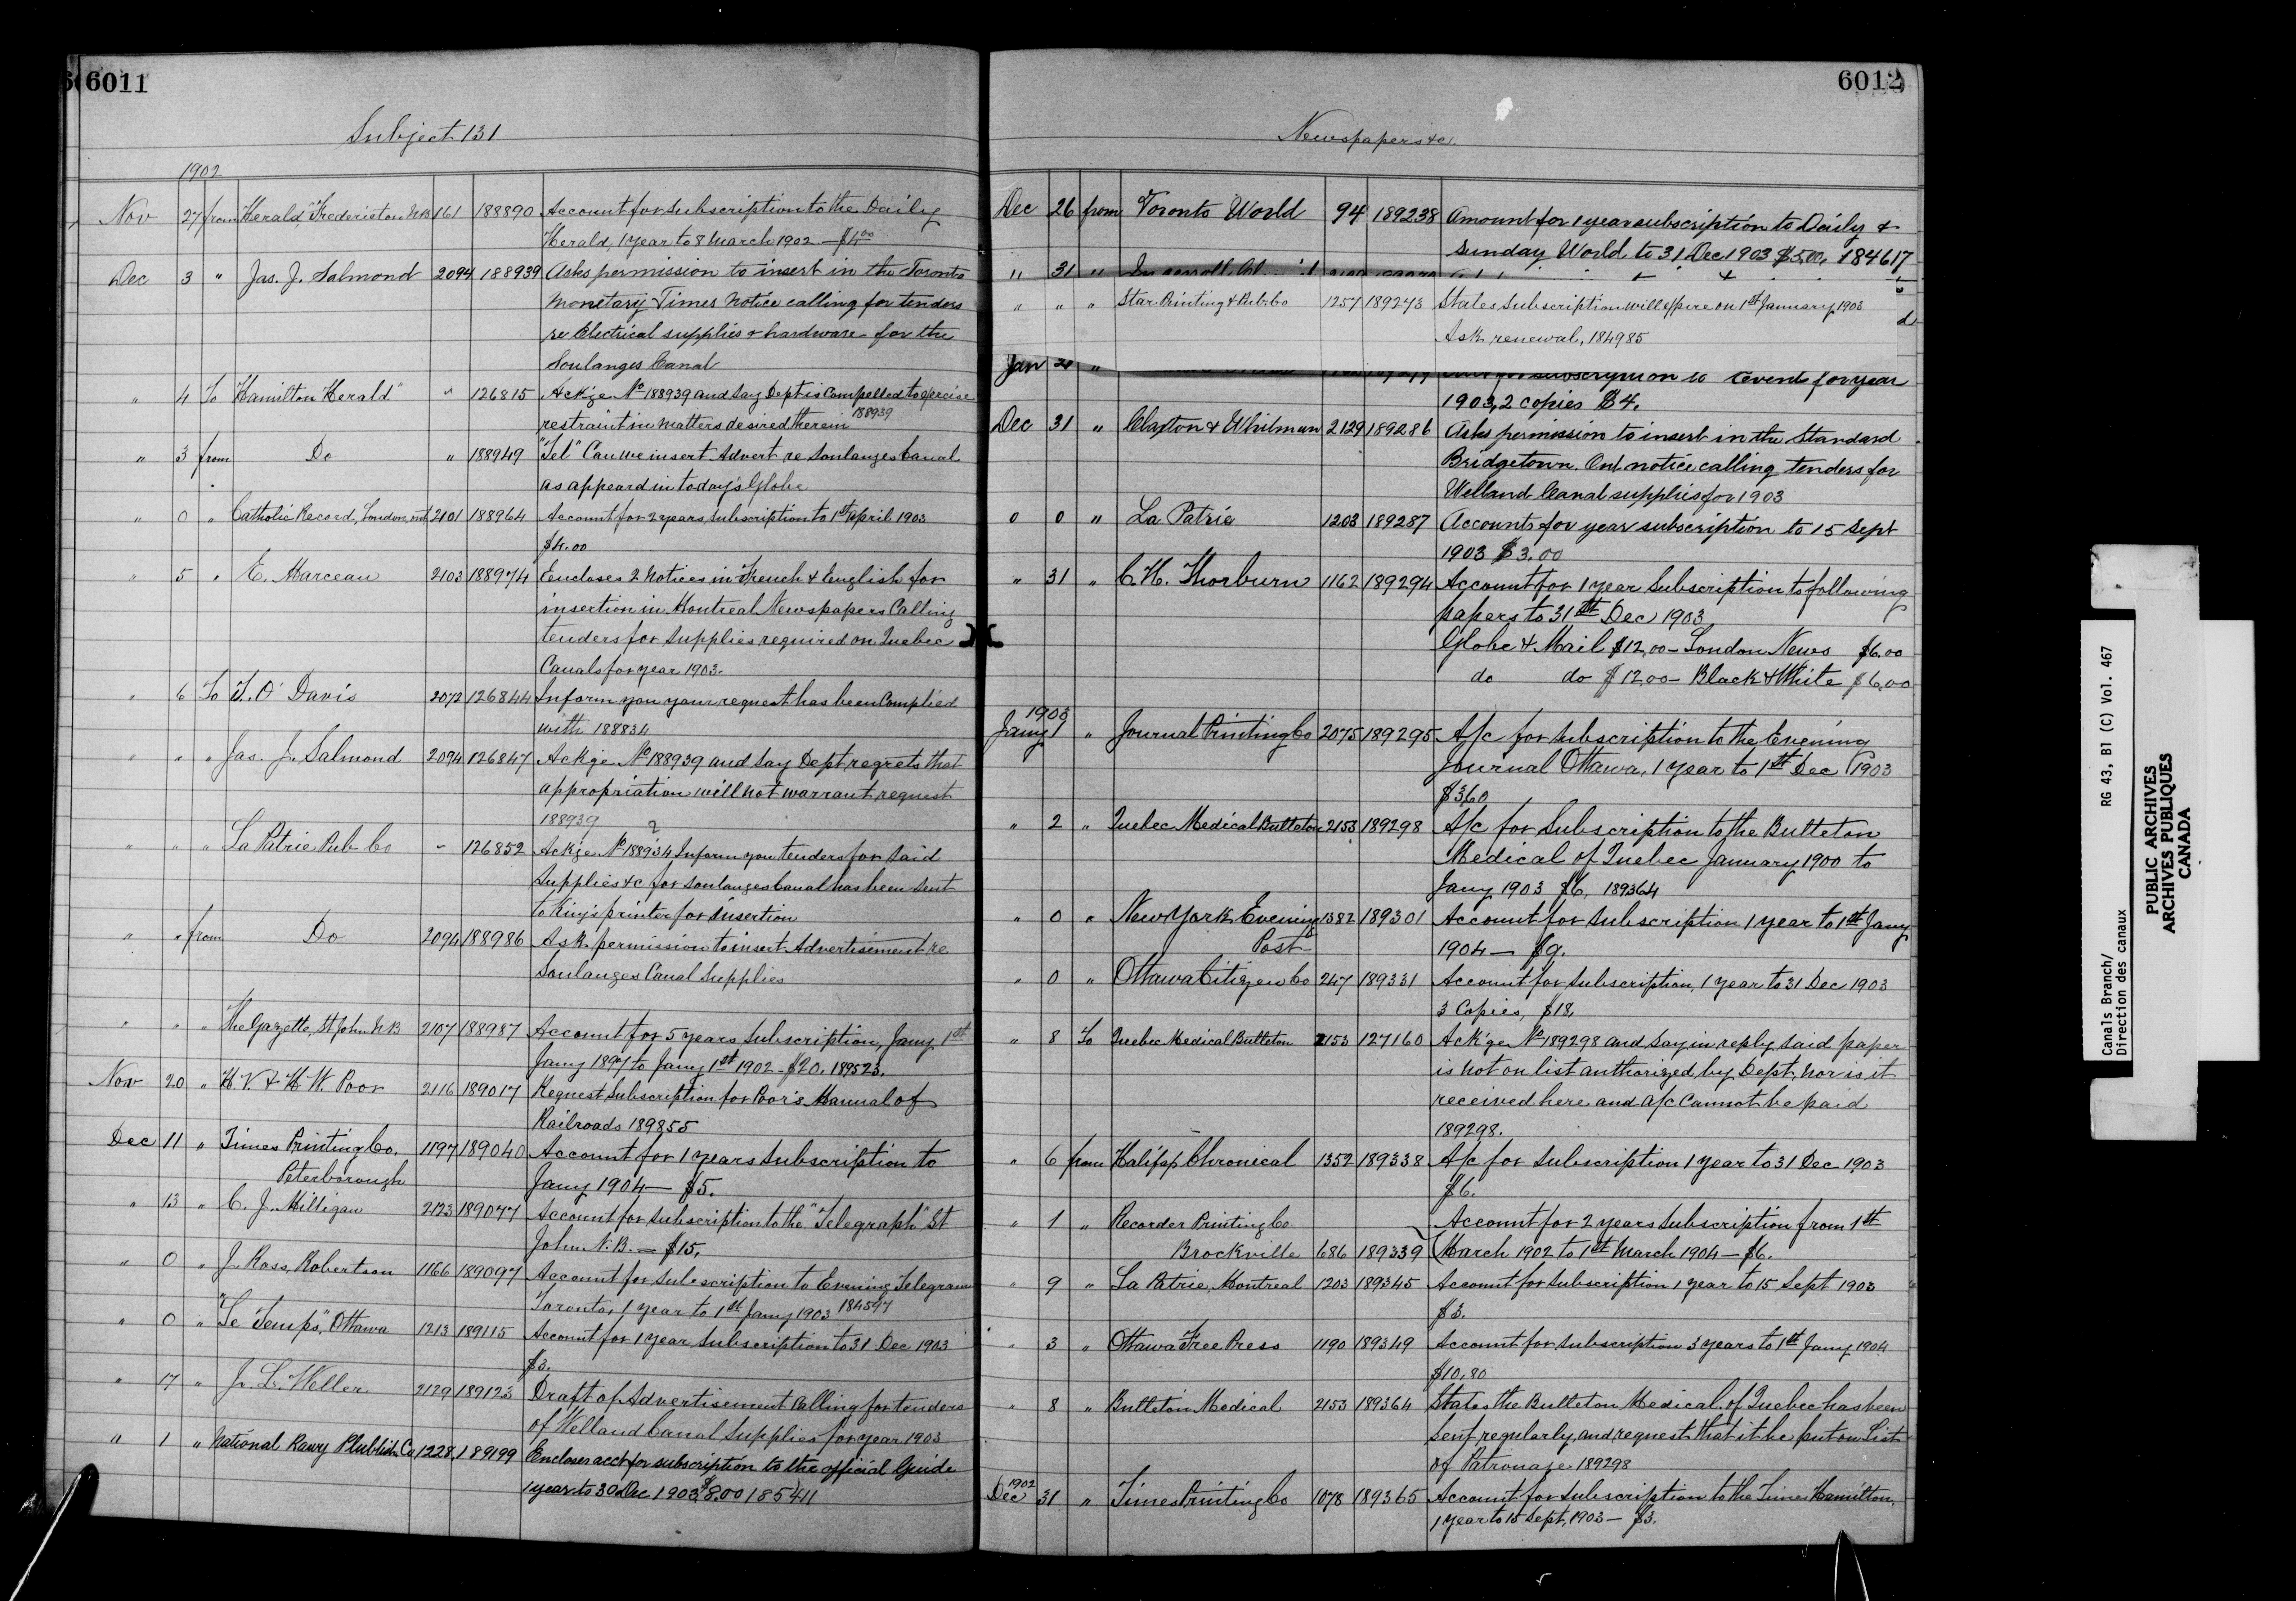 6011
Subject 131
1902
Nov 27 from "Herald," Fredericton N.B 161 188890 Account for subscription to the Daily
Herald, 1 year to 8 March 1902 — $4.00
Dec 3 " Jas. J. Salmond 2094 188939 Asks permission to insert in the Toronto
Monetary Times notice calling for tenders
re Electrical supplies & hardware for the
Soulanges Canal
" 4 To Hamilton "Herald" " 126815 Ackge No 188939 and say Dept is compelled to exercise
restraint in matters desired therein 188939
" 3 from Do " 188949 "Tel" Can we insert Advert re Soulanges Canal
as appeard in today's Globe
" 0 " Catholic Record, London, Ont 2101 188964 Account for 2 years subscription to 1st April 1903
$4.00
" 5 " E. Marceau 2103 188974 Encloses 2 notices in French & English for
insertion in Montreal Newspapers Calling
tenders for supplies required on Quebec
Canals for year 1903.
" 6 To T. O. Davis 2072 126844 Inform you your request has been Complied
with 188834
" " " Jas. J. Salmond 2094 126847 Ackge No 188939 and say Dept regrets that
appropriation will not warrant request
188939
" " " La Patrie Pub Co " 126852 Ackge No 188934 Inform you tenders for said
supplies &c for Soulanges Canal has been sent
to King's printer for insertion
" " from Do 2094 188986 Ask permission to insert Advertisement re
Soulanges Canal Supplies
" " " The Gazette, St John N B 2107 188987 Account for 5 years Subscription, Jany 1st
Jany 1897 to Jany 1st 1902 - $20. 189523.
Nov 20 " H V & H W. Poor 2116 189017 Request Subscription for Poor's Manual of
Railroads 189855
Dec 11 " Times Printing Co. 1197 189040 Account for 1 years Subscription to
Peterborough Jany 1904 — $5.
" 13 " C. J. Milligan 2123 189077 Account for subscription to the "Telegraph" St
John N.B. — $15,
" 0 " J. Ross Robertson 1166 189097 Account for subscription to Evening Telegram
Toronto, 1 year to 1st Jany 1903 184597
" 0 " "Le Temps," Ottawa 1213 189115 Account for 1 year Subscription to 31 Dec 1903
$3.
" 17 " J. L. Weller 2129 189123 Draft of Advertisement Calling for tenders
of Welland Canal Supplies for year 1903
" 1 " National Rawy Plublish. Co 1228 189199 Encloses acct for subscription to the official Guide
1 year to 30 Dec 1903 $8.00 185411
6012
Newspapers &c.
Dec 26 from Toronto World 94 189238 Amount for 1 year subscription to Daily &
Sunday World to 31 Dec 1903 $5.00. 184617
" 31 "
" " " Star Printing & Pub. Co 1257 189273 States subscription will expire on 1st January 1903
Ask renewal, 184985
Jan "
subscription to Events for year
1903, 2 copies $4.
Dec 31 " Claxton & Whitman 2129 189286 Asks permission to insert in the Standard
Bridgetown. Ont. notice calling tenders for
Welland Canal supplies for 1903
0 0 " La Patrie 1203 189287 Accounts for year subscription to 15 Sept
1903 $3.00
" 31 " C. H. Thorburn 1162 189294 Account for 1 year Subscription to following
papers to 31st Dec 1903
Globe & Mail $12.00 — London News $6.00
do do $12.00 — Black & White $6.00
1903
Jany 1 " Journal Printing Co 2075 189295 A/c for subscription to the Evening
Journal Ottawa, 1 year to 1st Dec 1903
$3.60
" 2 " Quebec Medical Bulleton 2153 189298 A/c for Subscription to the Bulleton
Medical of Quebec January 1900 to
Jany 1903 $6. 189364
" 0 " New York Evening 1382 189301 Account for subscription 1 year to 1st Jany
Post 1904 — $9.
" 0 " Ottawa Citizen Co 247 189331 Account for subscription, 1 year to 31 Dec 1903
3 Copies, $18.
" 8 To Quebec Medical Bulleton 2153 127160 Ack'ge No 189298 and say in reply said paper
is not on list authorized by Dept, nor is it
received here and a/c cannot be paid
189298.
" 6 from Halifax Chronical 1352 189338 A/c for subscription 1 year to 31 Dec 1903
$6.
" 1 " Recorder Printing Co Account for 2 years subscription from 1st
Brockville 686 189339 March 1902 to 1st March 1904 — $6.
" 9 " La Patrie, Montreal 1203 189345 Account for subscription 1 year to 15 Sept 1903
$3.
" 3 " Ottawa Free Press 1190 189349 Account for subscription 3 years to 1st Jany 1904
$10.80
" 8 " Bulleton Medical 2153 189364 States the Bulleton Medical of Quebec has been
sent regularly, and request that it be put on List
of Patronage 189298
1902
Dec 31 " Times Printing Co 1078 189365 Account for subscription to the Time Hamilton,
1 year to 15 Sept, 1903 — $3.
Canals Branch/ RG 43, B1 (C) Vol. 467
Direction des canaux
PUBLIC ARCHIVES
ARCHIVES PUBLIQUES
CANADA